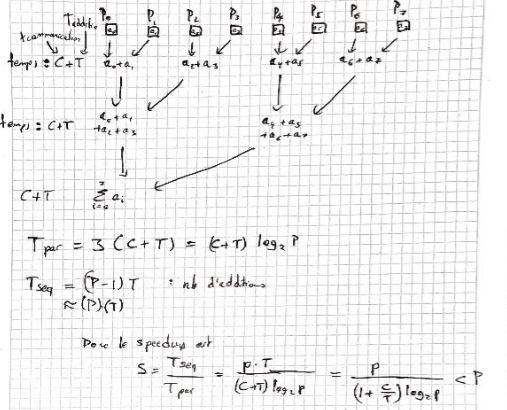 P₀ P₁ P₂ P₃ P₄ P₅ P₆ P₇
T addition
t communication
a₀ a₁ a₂ a₃ a₄ a₅ a₆ a₇
temps : C+T a₀+a₁ a₂+a₃ a₄+a₅ a₆+a₇
temps : C+T a₀+a₁ +a₂+a₃ a₄+a₅ +a₆+a₇
C+T Σ_{i=0}^{7} aᵢ
T_par = 3 (C+T) = (C+T) log₂ P
T_seq = (P-1) T : nb d'additions
≈ (P)(T)
Donc le speedup est
S = T_seq / T_par = p·T / (C+T) log₂ p = p / (1 + C/T) log₂ p < P